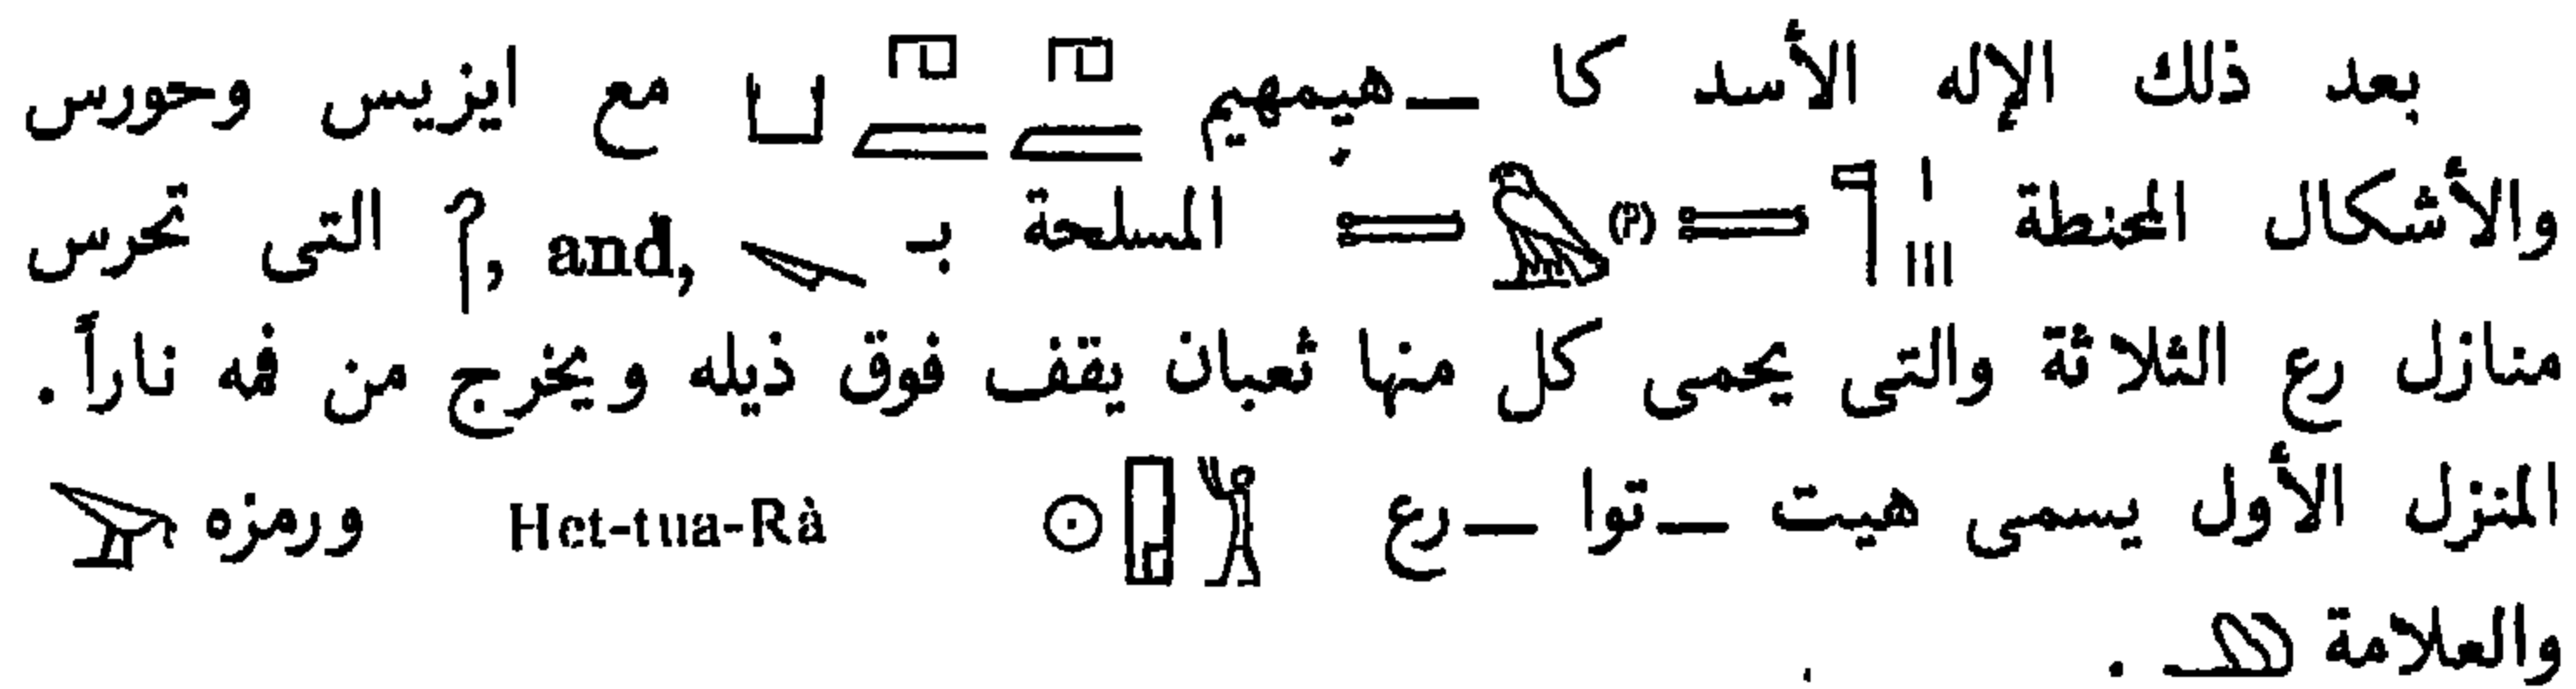 بعد ذلك الإله الأسد كا — هيمهيم مع ايزيس وحورس
والأشكال المحنطة (?) المسلحة بـ and, , التى تحرس
منازل رع الثلاثة والتى يحمى كل منها ثعبان يقف فوق ذيله ويخرج من فمه ناراً .
المنزل الأول يسمى هيت — توا — رع Het-tua-Rà ورمزه
والعلامة .